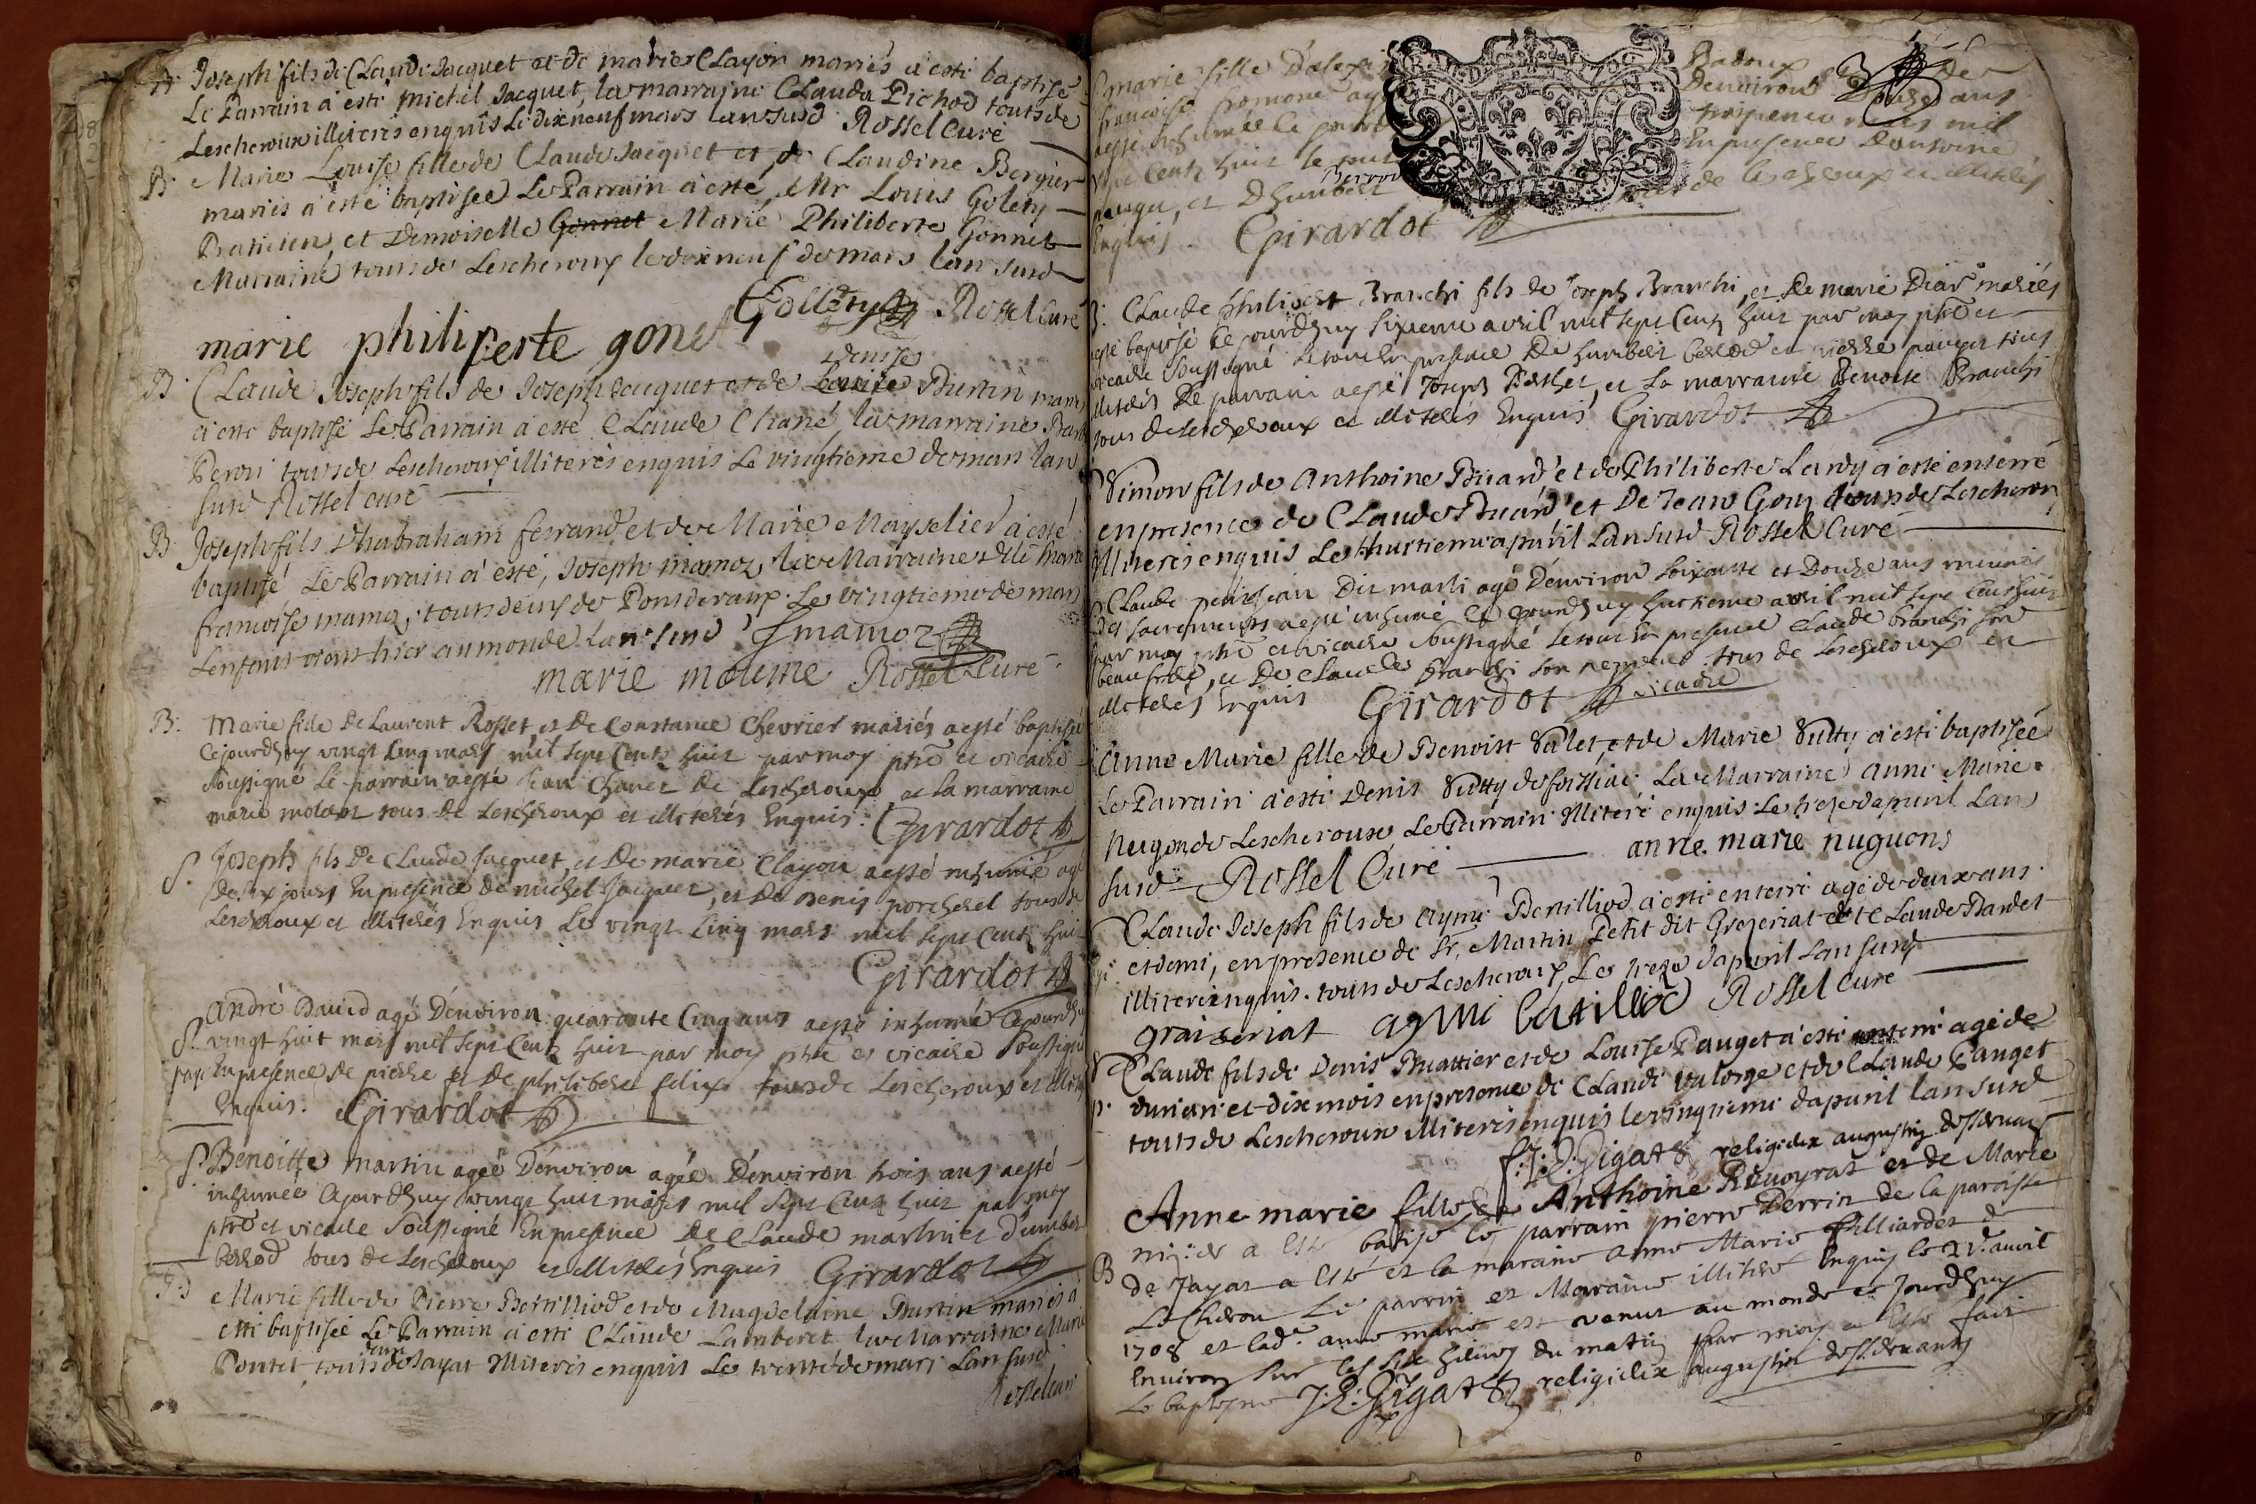 B. Joseph fils de Claude Jacquet et de marie Clayon mariés a esté baptisé
Le Parrain a esté michel Jacquet, la marraine Clauda Pichod touts de
Lescheroux illiterés enquis Le dix neuf mars lan susd Rossel Curé
B. Marie Louise fille de Claude Jacquet et de Claudine Bergier
mariés a esté baptisée Le Parrain a esté, Mr Louis Golety
Praticien, et Demoiselle Gonnet Marie Philiberte Gonnet
Marraine touts de Lescheroux le dix neuf de mars lan susd
Gollety Rossel Curé
marie philiberte gonet
denise
B. Claude Joseph fils de Joseph Jacquet et de Burtin mariés
a esté baptisé Le Parrain a esté Claude Chané la marraine
Peron touts de Lescheroux illiterés enquis Le vingtieme de mars lan
susd Rossel curé
B. Joseph fils Dhabraham ferrand et de Marie Mayselier a esté
baptisé Le Parrain a esté, Joseph mamoz, la Marraine Dlle marie
francoise mamoz, touts deux de Pondevaux. Le vingtieme de mars
Lenfant né hier au monde lan susd J mamoz
marie Rossel Curé
B: Marie fille De Laurent Rosset et De Constance Chevrier mariés a esté baptisée
Cejourdhuy vingt Cinq mars mil sept Cents huit par moy ptre et vicaire
soussigné Le parrain a esté Jean Chanel De Lescheroux et la marraine
marie tous De Lescheroux et illiterés Enquis. Girardot
S. Joseph fils De Claude Jacquet, et De marie Clayon a esté inhumé agé
de six jours En presence de michel Jacquet, et De Denis porcherel tous de
Lescheroux et illiterés Enquis Le vingt Cinq mars mil sept Cents huit
Girardot
André David agé Denviron quarante Cinq ans a esté inhumé Cejourdhuy
S. vingt huit mars mil sept Cents huit par moy ptre et vicaire soussigné
En presence De pierre et De philibert felix tous de Lescheroux et illiterés
Enquis. Girardot
S. Benoitte martin agée Denviron agée Denviron trois ans a esté
inhumée Cejourdhuy vingt huit mars mil sept Cents huit par moy
ptre et vicaire soussigné En presence De Claude martin et D'umbert
berrod tous de Lescheroux et illiterés Enquis Girardot
Marie fille de Pierre Bertilliod et de Magdelaine Burtin mariés a
esté baptisée Le Parrain a esté Claude Lamberet la Marraine Marie
Pontet, touts deux de Jayat illiterés enquis Le trente de mars Lan susd
Rossel curé
marie fille
francoise agée Denviron Douze ans
a esté inhumée le mil
sept Cents huit En presence Dantoine
pauget, et Dhumbert Berrod de Lescheroux et illiterés
Enquis. Girardot
B. Claude Philibert Branchi fils de Joseph Branchi, et de marie Diar mariés
a esté baptisé Cejourdhuy sixieme avril mil sept Cents huit par moy ptre et
vicaire soussigné Le tout En presence De humbert berrod et pierre pauget tous
illiterés Le parrain a esté Joseph Berthet, et La marraine Benoite Branchi
tous de Lescheroux et illiterés Enquis Girardot
Simon fils de Anthoine Buard, et de Philiberte Lardy a esté enterré
en presence de Claude Buard et De Jean Gouy touts de Lescheroux
illiterés enquis Le huitieme apvril Lan susd Rossel Curé
Claude petitjean Dit marli agé Denviron soixante et Douze ans munis
Des sacrements a esté inhumé Cejourdhuy huitieme avril mil sept Cents huit
par moy ptre et vicaire soussigné Le tout En presence Claude branchi son
beau frere, et De Claude Branchi son nepveu tous de Lescheroux et
illiterés Enquis Girardot vicaire
Anne Marie fille de Benoist Valet, et de Marie Vutty a esté baptisée
Le Parrain a esté Denis Vutty de foissiac La Marraine Anne Marie
Nugon de Lescheroux Le Parrain illiteré enquis Le treze dapvril Lan
susd Rossel Curé anne marie nuguons
Claude Joseph fils de Aymé Bertilliod a esté enterré agé de deux ans
et demi, en presence de Sr. Martin Petit dit Grezeriat et Claude Bardet
illiteré enquis. touts de Lescheroux Le treze dapvril Lan susd
graizeriat aymé batilliod Rossel Curé
Claude fils de Denis Buattier et de Louise Pauget a esté enterré agé de
dun an et dix mois en presence de Claude Valorge et de Claude Pauget
touts de Lescheroux illiterés enquis le vingtieme dapvril lan susd
f: J: Gigat religieux augustin desservant
B Anne marie fille de Anthoine Revoyrat et de Marie
a esté batisé le parrain pierre Perrin de la paroisse
de Jayat a esté et la maraine anne Marie filliardet de
Lecheron Le parrin et Maraine illitere Enquis le 21e. avril
1708 et lade. anne marie est venue au monde ce Jourdhuy
Environ sur les six heures du matin par moy a esté fait
Le baptesme J: Gigat religieux augustin desservant